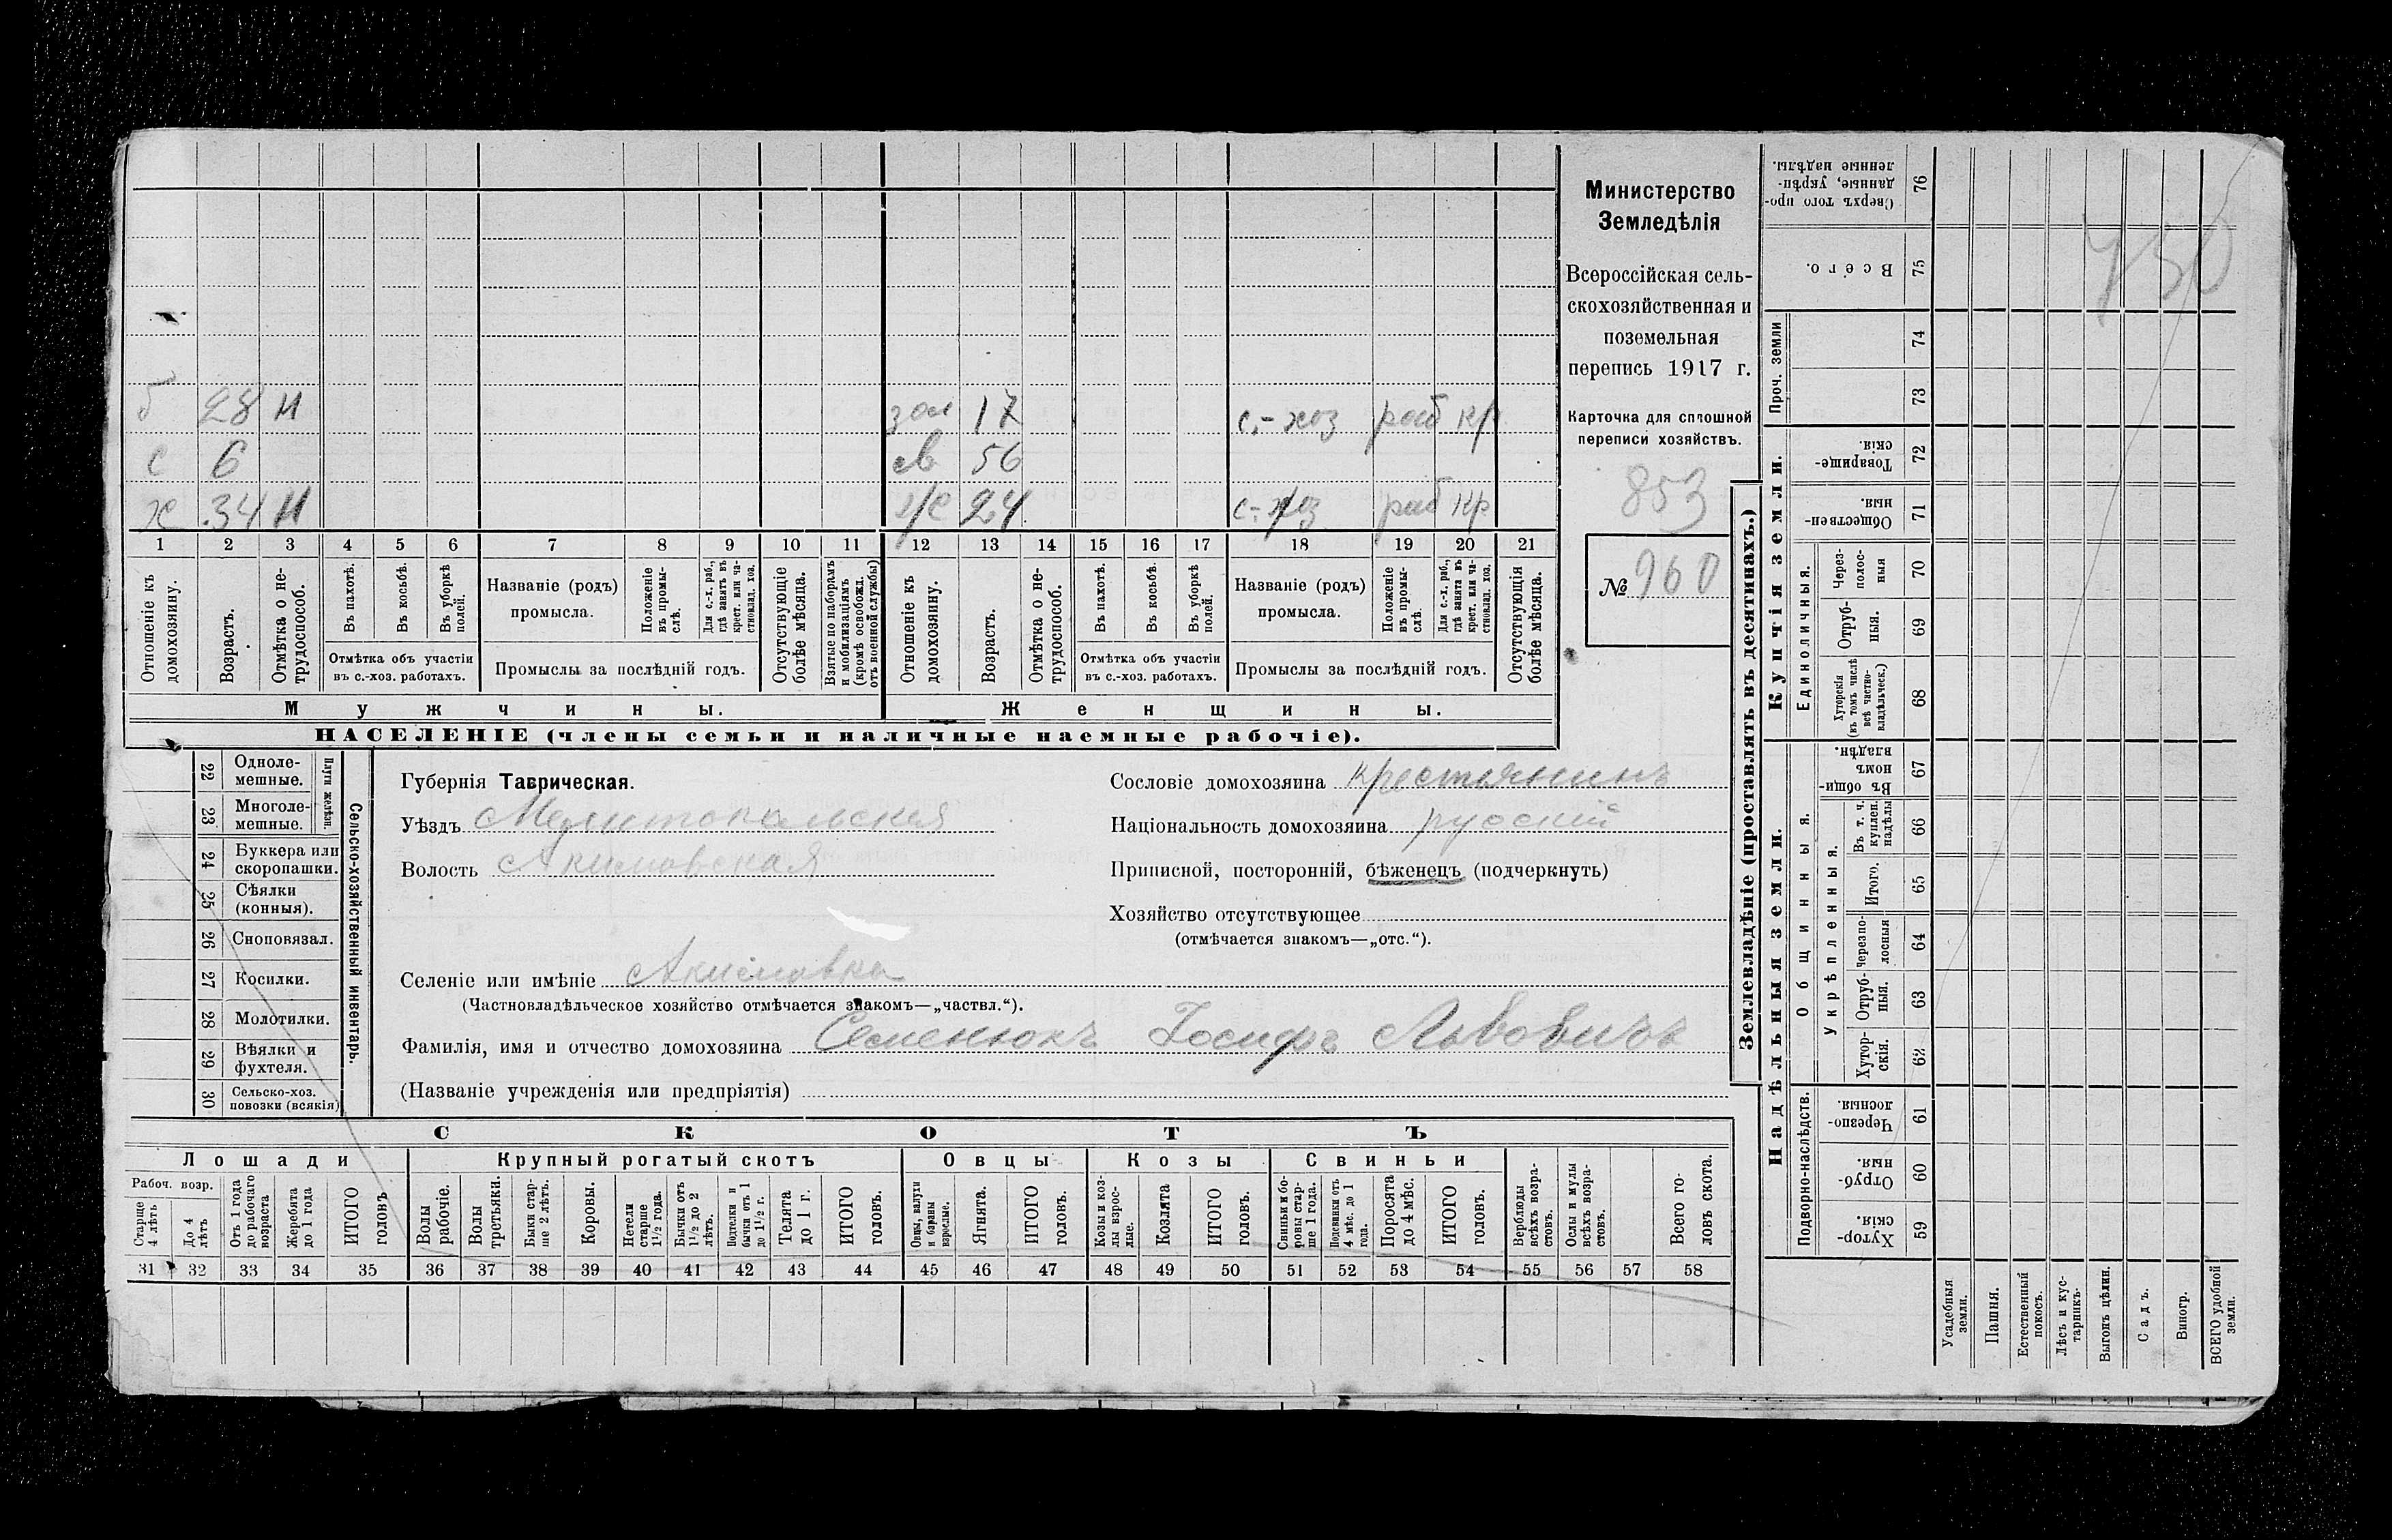 б 28 н зол 17 с.-хоз раб кр
с 6 св 56
х 34 н ж 24 с.-хоз раб кр
1 2 3 4 5 6 7 8 9 10 11 12 13 14 15 16 17 18 19 20 21
Отношеніе къ домохозяину.
Возрастъ.
Отмѣтка о не-трудоспособ.
Въ пахотѣ.
Въ косьбѣ.
Въ уборкѣ полей.
Отмѣтка объ участіи въ с.-хоз. работахъ.
Названіе (родъ) промысла.
Положеніе въ промы-слѣ.
Для с.-х. раб., гдѣ занятъ въ крест. или ча-стновлад. хоз.
Промыслы за послѣдній годъ.
Отсутствующіе болѣе мѣсяца.
Взятые по наборамъ и мобилизаціямъ (кромѣ освобожд. отъ военной службы)
Отношеніе къ домохозяину.
Возрастъ.
Отмѣтка о не-трудоспособ.
Въ пахотѣ.
Въ косьбѣ.
Въ уборкѣ полей.
Отмѣтка объ участіи въ с.-хоз. работахъ.
Названіе (родъ) промысла.
Положеніе въ промы-слѣ.
Для с.-х. раб., гдѣ занята въ крест. или ча-стновлад. хоз.
Промыслы за послѣдній годъ.
Отсутствующія болѣе мѣсяца.
Мужчины. Женщины.
НАСЕЛЕНІЕ (члены семьи и наличные наемные рабочіе).
Министерство
Земледѣлія
Всероссійская сель-
скохозяйственная и
поземельная
перепись 1917 г.
Карточка для сплошной
переписи хозяйствъ.
853
№ 960
22 Одноле-мешные.
23 Многоле-мешные.
Плуги желѣзн.
24 Буккера или скоропашки.
25 Сѣялки (конныя).
26 Сноповязал.
27 Косилки.
28 Молотилки.
29 Вѣялки и фухтеля.
30 Сельско-хоз. повозки (всякія)
Сельско-хозяйственный инвентарь.
Губернія Таврическая.
Уѣздъ Мелитопольская
Волость Акимовская
Сословіе домохозяина крестьянинъ
Національность домохозяина русскій
Приписной, посторонній, бѣженецъ (подчеркнуть)
Хозяйство отсутствующее
(отмѣчается знакомъ—„отс.“).
Селеніе или имѣніе Акимовка
(Частновладѣльческое хозяйство отмѣчается знакомъ—„частвл.“).
Фамилія, имя и отчество домохозяина Семенюкъ Іосифъ Львовичъ
(Названіе учрежденія или предпріятія)
СКОТЪ
Лошади Крупный рогатый скотъ Овцы Козы Свиньи
Рабоч. возр.
Старше 4 лѣтъ
До 4 лѣтъ
Отъ 1 года до рабочаго возраста
Жеребята до 1 года
ИТОГО головъ
Волы рабочіе.
Волы третьяки.
Быки стар-ше 2 лѣтъ.
Коровы.
Нетели старше 1½ года.
Бычки отъ 1½ до 2 лѣтъ.
Подтелки и бычки отъ 1 до 1½ г.
Телята до 1 г.
ИТОГО головъ.
Овцы, валухи и бараны взрослые.
Ягнята.
ИТОГО головъ.
Козы и коз-лы взрос-лые.
Козлята
ИТОГО головъ.
Свиньи и бо-ровы стар-ше 1 года.
Подсвинки отъ 4 мѣс. до 1 года.
Поросята до 4 мѣс.
ИТОГО головъ.
Верблюды всѣхъ возра-стовъ.
Ослы и мулы всѣхъ возра-стовъ.
Всего го-ловъ скота.
31 32 33 34 35 36 37 38 39 40 41 42 43 44 45 46 47 48 49 50 51 52 53 54 55 56 57 58
Землевладѣніе (проставлять въ десятинахъ.)
Надѣльныя земли. Купчія земли. Проч. земли
Подворно-наслѣдств. Общинныя. Единоличныя.
Укрѣпленныя.
76 Сверхъ того про-данные, укрѣп-ленные надѣлы.
75 Всего.
74
73
72 Товарище-скія.
71 Обществен-ныя.
70 Через-полос-ныя
69 Отруб-ныя.
68 Хуторскія (въ томъ числѣ всѣ частно-владѣльческ.)
67 Въ общин-номъ владѣн.
66 Въ т. ч. куплен. надѣлы
65 Итого.
64 Черезпо-лосныя
63 Отруб-ныя.
62 Хутор-скія.
61 Черезпо-лосныя.
60 Отруб-ныя.
59 Хутор-скія.
Усадебныя земли.
Пашня.
Естественный покосъ.
Лѣсъ и кус-тарникъ.
Выгонъ цѣлин.
Садъ.
Виногр.
ВСЕГО удобной земли.